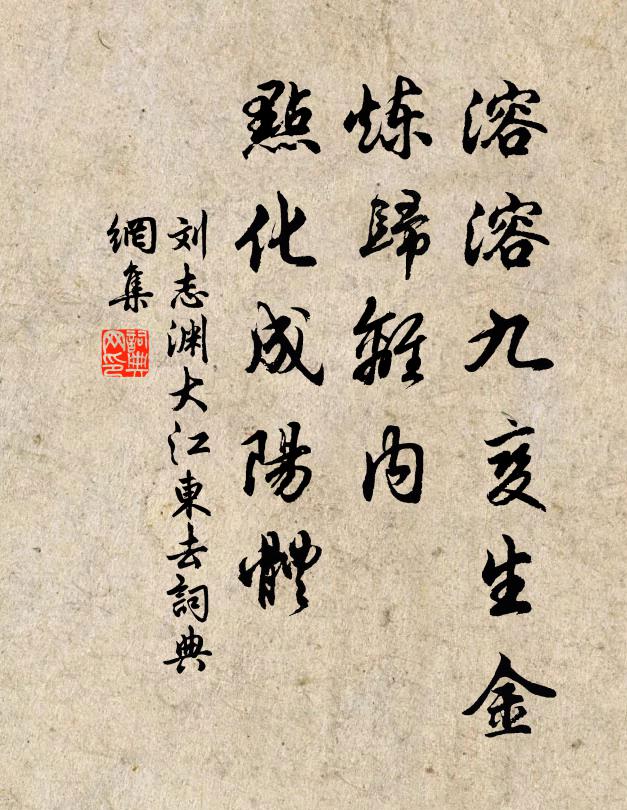 溶溶九变生金
炼歸離内
點化成陽體
刘志渊大江東去詞典
網集
詞典
网印